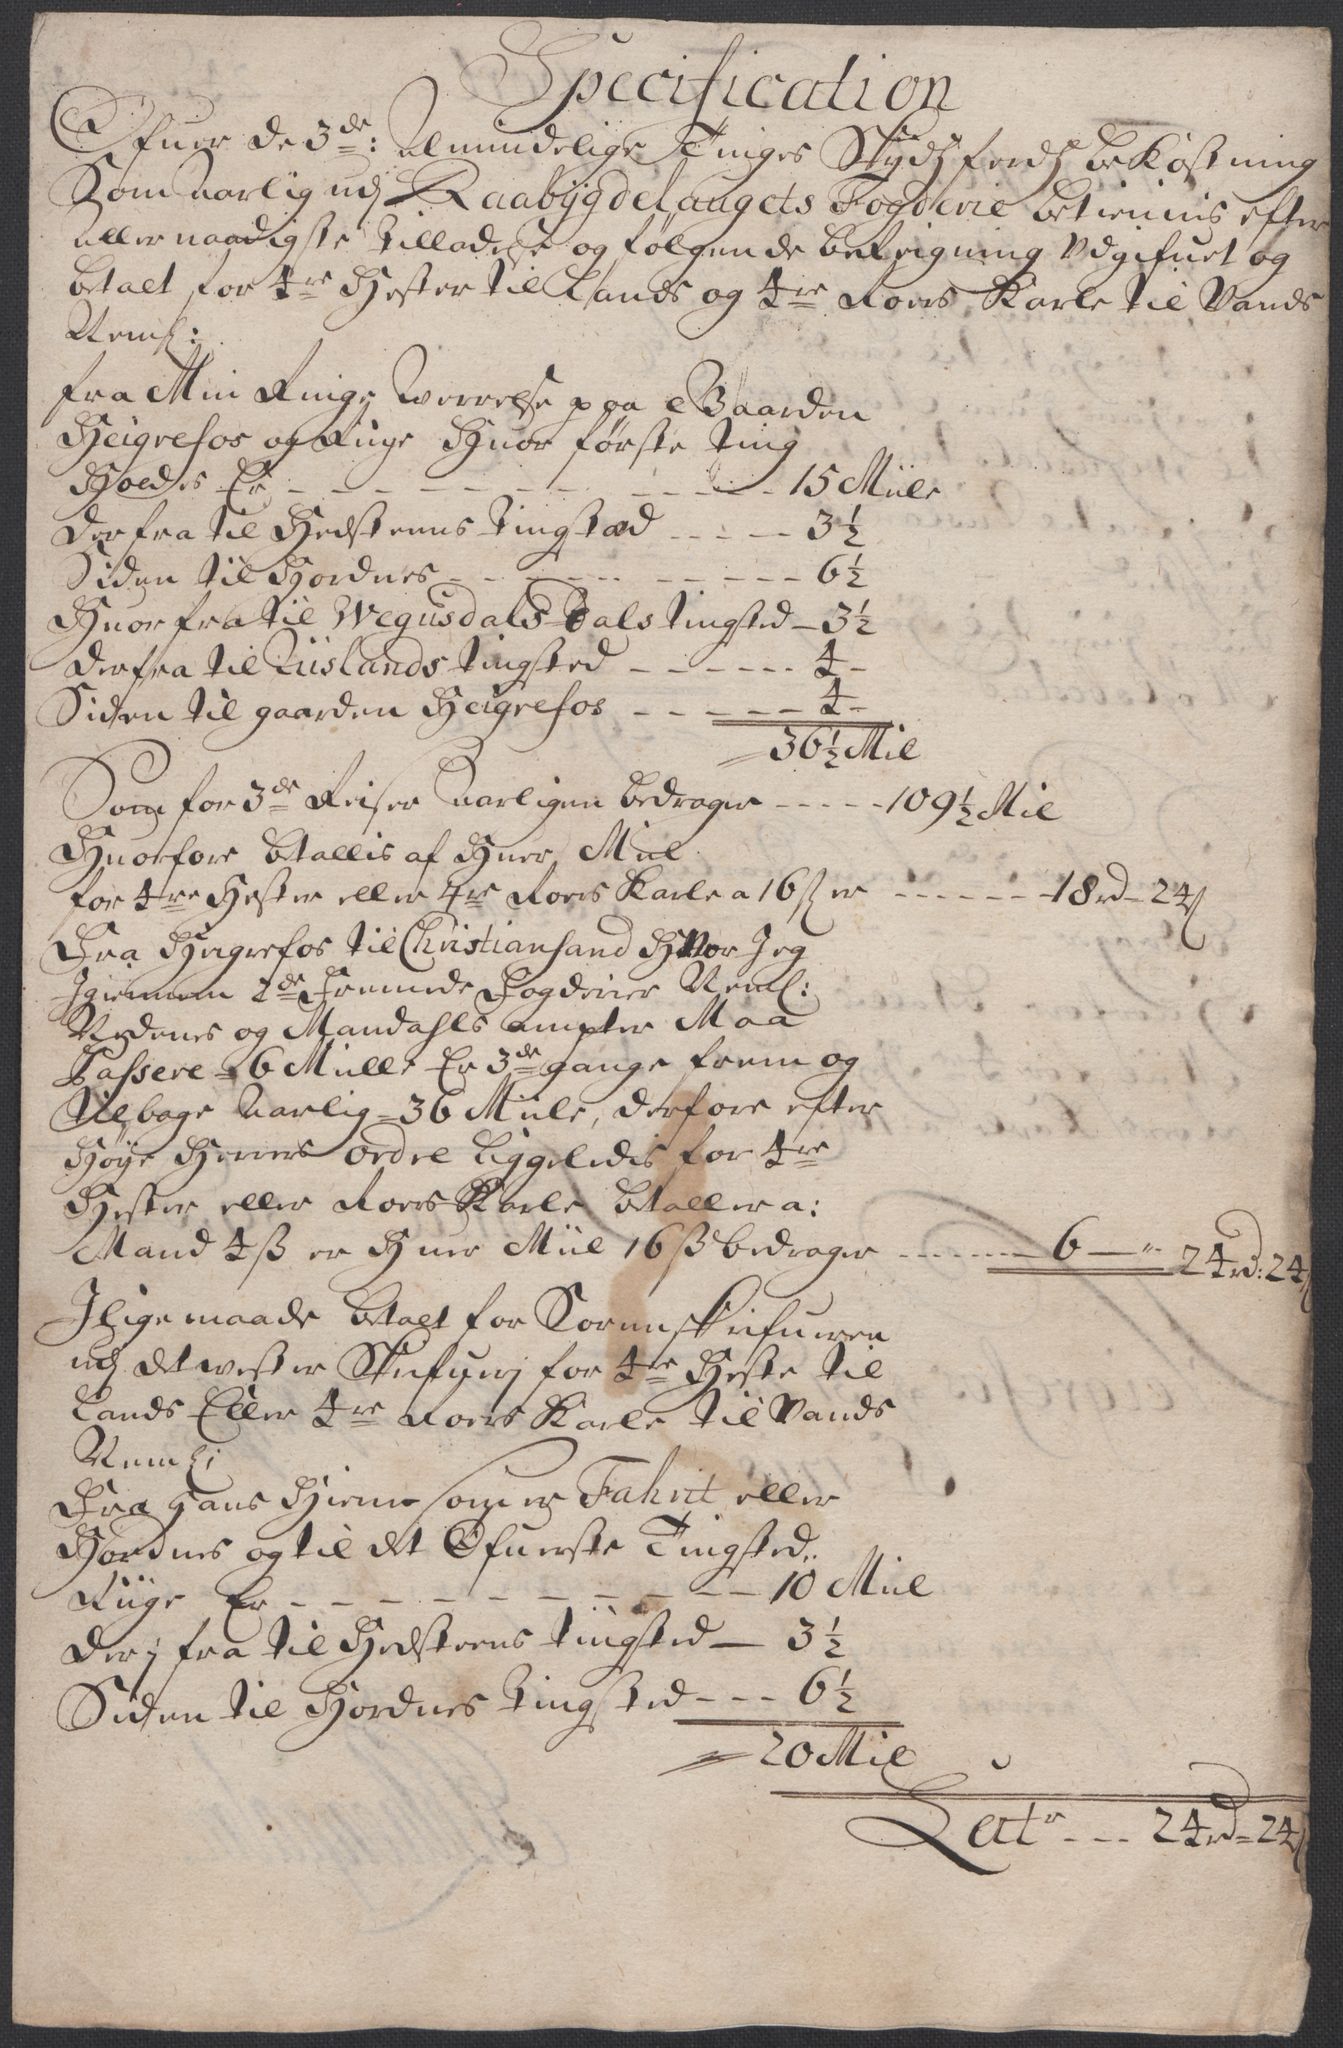 Specification
Ofuer de 3de: Almindelige Tinges Skydsferds bekostning
Som aarlig udj Raabÿgdelaugets Fogderie betiennis efter
allernaadigste tilladelse og følgende bereigning Udgifuet og
betalt for 4re Hester til Lands og 4re Roers Karle til Vands
Neml:
fra Min Ringe Werrelse paa Gaarden
Heigrefos og Riige Huor første ting
Holdes Er - - - 15 Miile
Derfra til Hedsteens tingstæd - - - 3½
Siden til Hordnes - - - 6½
Huorfra til Wegusdals Dals tingsted - 3½
Derfra til Riislands tingsted - - - 4 -
Siden til gaarden Heigrefos - - - 4 -
36½ Mil
Som for 3de Reiser aarligen bedrager - - - 109½ Mil
Huorfore betallis af Huer Miil
for 4re Hester eller 4re Roers Karle a 16 ß er - - - 18 rd - 24 ß
Fra Heigrefos til Christiansand Hvor Jeg
Igiennem 2de Fremmede Fogderier Neml:
Nedenes og Mandahls ampter Maa
Passere - 6 Mille Er 3de gange frem og
tilbage aarlig = 36 Miile, derfore efter
Høÿe Herrers ordre liggeledis for 4re
Hester eller Roers Karle betaller a:
Mand 4 ß er Huer Miil 16 ß bedrager - - - 6 — " 24 rd: 24 ß
Jlige maade betalt for Sorenskrifueren
udj det wester Skriferj for 4re Heste til
Lands Eller 4re Roers Karle til Vands
Neml:
Fra hans Hiem som er Fahret eller
Hordnes og til det Ofuerste Tingsted..
Riige Er - - - 10 Miil
Derj fra til Hedsteens tingsted — 3½
Siden til Hordnes tingsted - - - 6½
20 Mil
Latr - - - 24 rd = 24 ß